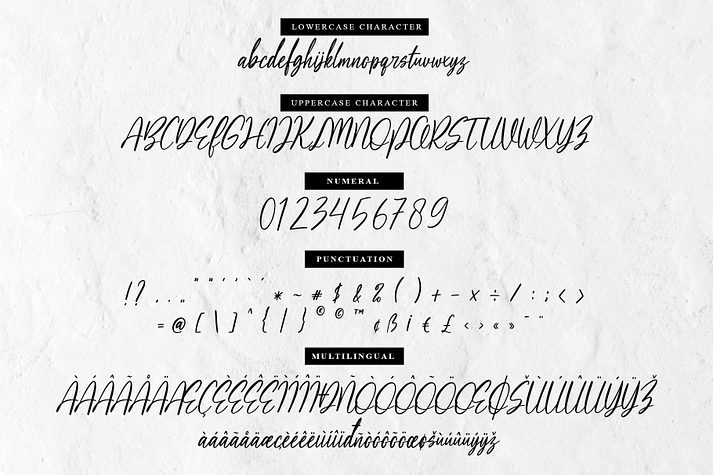 LOWERCASE CHARACTER
abcdefghijklmnopqrstuvwxyz
UPPERCASE CHARACTER
ABCDEFGHIJKLMNOPQRSTUVWXYZ
NUMERAL
0123456789
PUNCTUATION
!?..,„""''`´*~#$&%()+-×÷/:;<>
=@[\]^{|}©©™¢ßi€£‹›«»¨¯
MULTILINGUAL
ÀÁÂÃÅÄÆÇÈÉÊËÌÍÎÏÐÑÒÓÔÕÖŒØŠÙÚÛÜÝŸŽ
àáâãåäæçèéêëìíîïđñòóôõöœøšùúûüýÿž